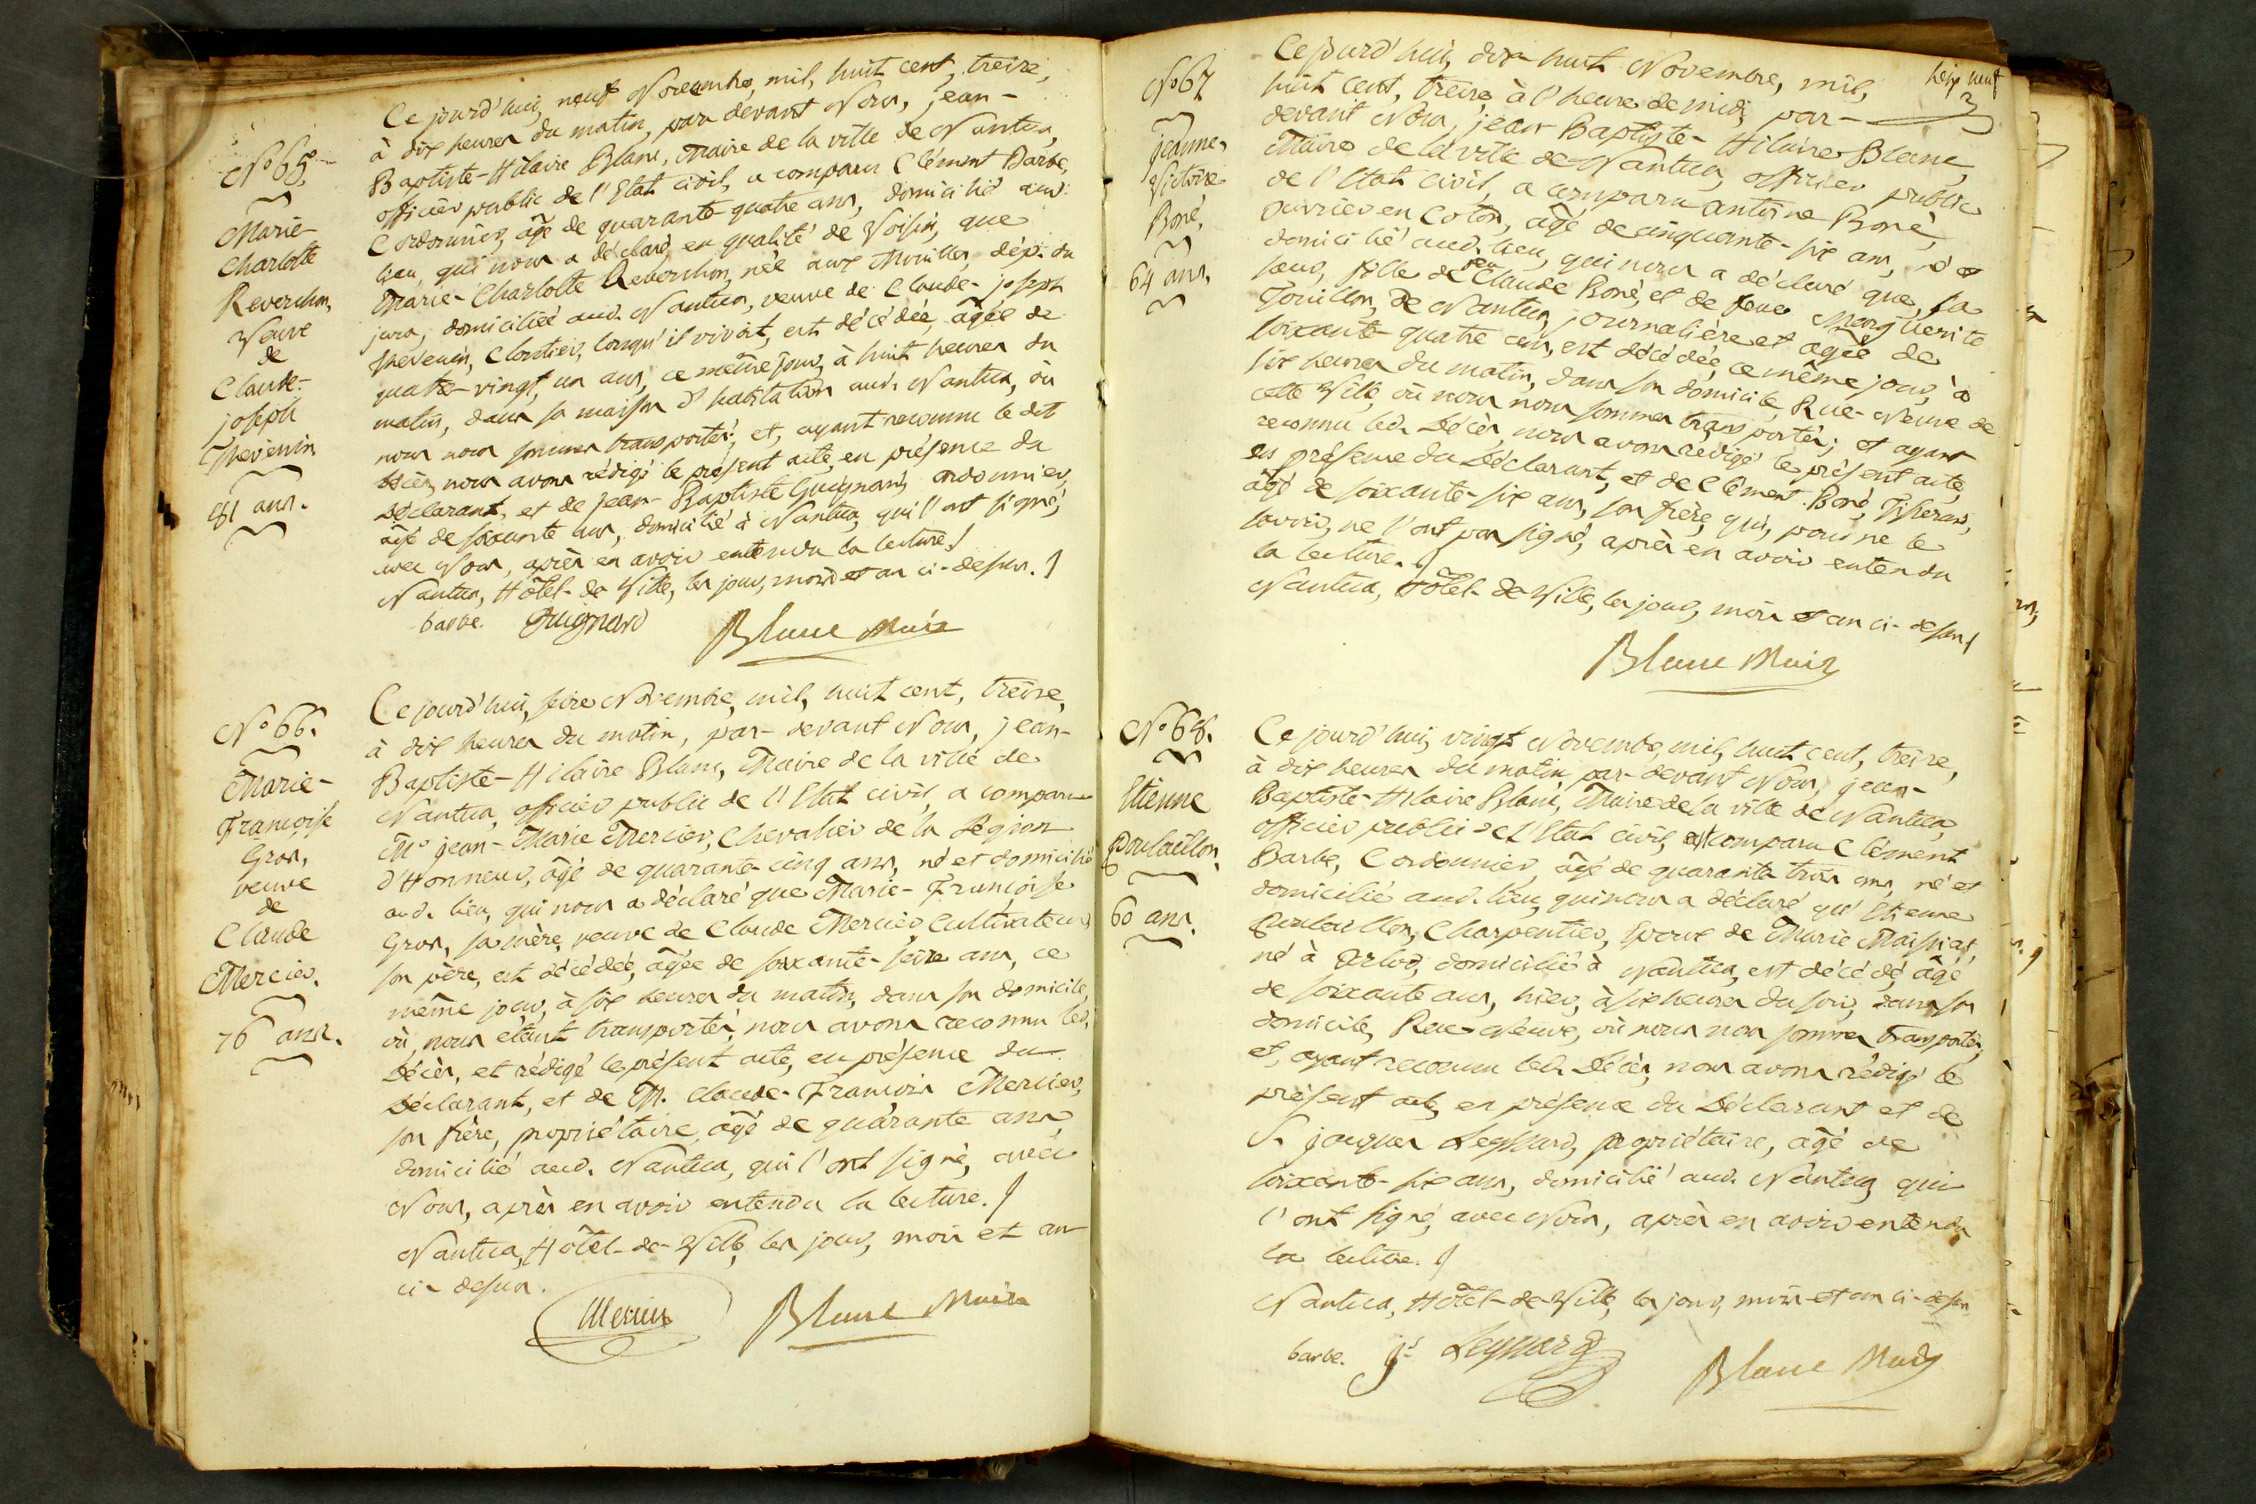 N.° 65.
Marie-
Charlotte
Reverchon,
Veuve
de
Claude-
joseph
Thevenin
81 ans.
Ce jourd'hui, neuf Novembre, mil, huit cent, treize,
à dix heures du matin, par devant Nous, jean-
Baptiste-Hilaire Blanc, Maire de la ville de Nantua,
officier public de l'Etat civil, a comparu Clément Barbe,
Cordonnier, âgé de quarante-quatre ans, domicilié aud.
lieu, qui nous a déclaré, en qualité de Voisin, que
Marie-Charlotte Reverchon, née aux Mouilles, dép.t du
jura, domiciliée aud. Nantua, veuve de Claude-joseph
Thevenin, Cloutier, lorsqu'il vivoit, est décédée, âgée de
quatre-vingt, un ans, ce même jour, à huit heures du
matin, dans sa maison d'habitation aud. Nantua, où
nous nous sommes transportés; et, ayant reconnu le dit
décès, nous avons rédigé le présent acte, en présence du
Déclarant, et de jean-Baptiste Guignard, cordonnier,
âgé de soixante ans, domicilié à Nantua, qui l'ont signé,
avec Nous, après en avoir entendu la lecture./
Nantua, Hôtel-de-Ville, les jour, mois et an ci-dessus./
barbe. Guignard Blanc Maire
N.° 66.
Marie-
Françoise
Gros,
veuve
de
Claude
Mercier.
76 ans.
Ce jourd'hui, seize Novembre, mil, huit cent, treize,
à dix heures du matin, par-devant Nous, jean-
Baptiste-Hilaire Blanc, Maire de la ville de
Nantua, officier public de l'Etat civil, a comparu
M.r jean-Marie Mercier, Chevalier de la Légion
d'Honneur, âgé de quarante-cinq ans, né et domicilié
aud. lieu, qui nous a déclaré que Marie-Françoise
Gros, sa mère, veuve de Claude Mercier, Cultivateur,
son père, est décédée, âgée de soixante-seize ans, ce
même jour, à six heures du matin, dans son domicile,
où, nous étant transportés, nous avons reconnu led.
Décès, et rédigé le présent acte, en présence du
Déclarant, et de M. Claude-François Mercier,
son frère, propriétaire, âgé de quarante ans,
domicilié aud. Nantua, qui l'ont signé, avec
Nous, après en avoir entendu la lecture./
Nantua, Hôtel-de-Ville, les jour, mois et an
ci-dessus.
Mercier Blanc Maire
N.° 67
jeanne,
Victoire
Boné,
64 ans.
Ce jourd'hui, dix-huit Novembre, mil,
huit cent, treize, à l'heure de midi, par-
devant Nous, jean-Baptiste-Hilaire Blanc,
Maire de la ville de Nantua, officier public
de l'Etat civil, a comparu antoine Boné,
ouvrier en Coton, âgé de cinquante-six ans, né et
domicilié aud. lieu, qui nous a déclaré que, sa
soeur, fille de feu Claude Boné, et de feue Marguerite
Touillon, de Nantua, journalière et âgée de
soixante-quatre ans, est décédée, ce même jour, à
six heures du matin, dans son domicile, Rue-Neuve de
cette Ville, où nous nous sommes transportés; et ayant
reconnu led. Décès, nous avons rédigé le présent acte,
en présence du Déclarant, et de Clément Boné, Tisserand,
âgé de soixante-six ans, son frère, qui, pour ne le
savoir, ne l'ont pas signé, après en avoir entendu
la lecture./
Nantua, Hôtel-de-Ville, les jour, mois et an ci-dessus/
Blanc Maire
N.° 68.
Etienne
60 ans.
Ce jourd'hui, vingt Novembre, mil, huit cent, treize,
à dix heures du matin, par-devant Nous, jean-
Baptiste-Hilaire Blanc, Maire de la ville de Nantua,
officier public de l'Etat civil, a comparu Clément
Barbe, Cordonnier, âgé de quarante trois ans, né et
domicilié aud. lieu, qui nous a déclaré qu'Etienne
Charpentier, Epoux de Marie Maissiat,
né à Arlod, domicilié à Nantua, est décédé, âgé
de soixante ans, hier, à six heures du soir, dans son
domicile, Rue-Neuve, où nous nous sommes transportés;
et, ayant reconnu led. Décès, nous avons rédigé le
présent acte, en présence du Déclarant et de
S. jacques Leyssard, propriétaire, âgé de
soixante-six ans, domicilié aud. Nantua, qui
l'ont signé, avec Nous, après en avoir entendu
la lecture./
Nantua, Hôtel-de-Ville, les jour, mois et an ci-dessus
barbe. Leyssard Blanc Maire